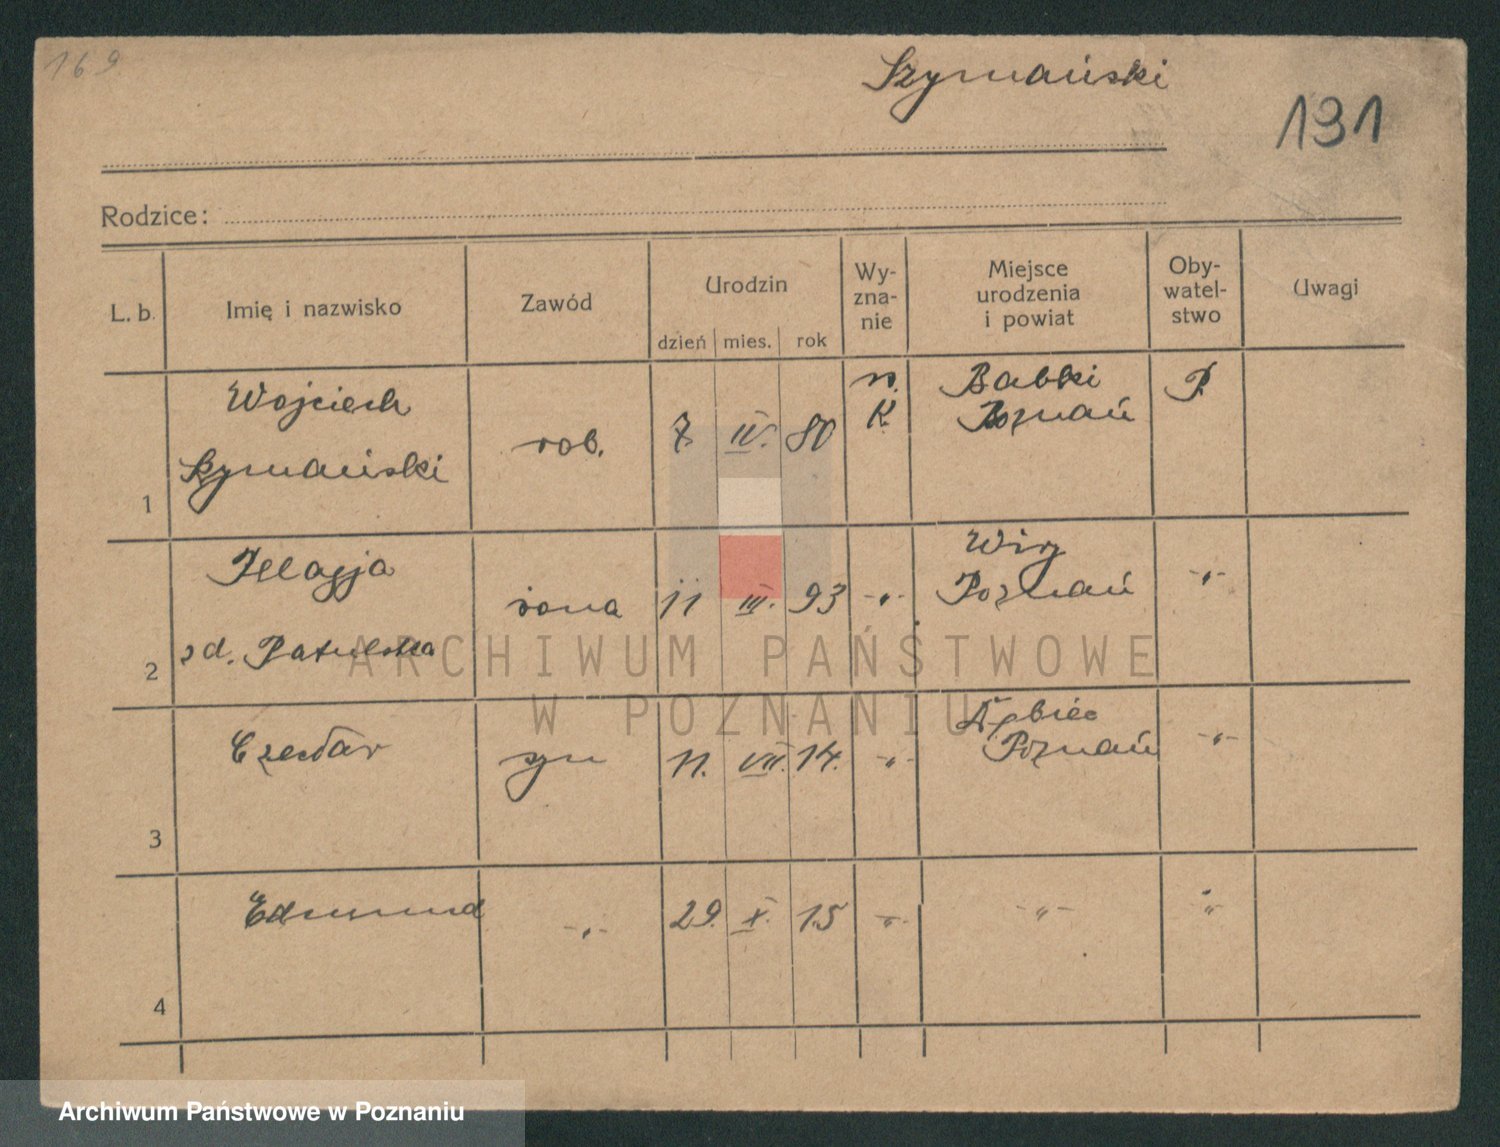 169
Szymański
191
Rodzice:
L. b. Imię i nazwisko Zawód Urodzin dzień mies. rok Wy-zna-nie Miejsce urodzenia i powiat Oby-watel-stwo Uwagi
Wojciech r. Babki P.
K. Poznań
1 Szymański rob. 7. IV. 80
Pelagja Wiry
żona 11 III. 93 -„- Poznań -„-
2 zd. Patulska
Czesław syn 11. VII. 14. -„- Dębiec -„-
Poznań
3
Edmund -„- 29. X. 15 -„- -„- -„-
4
ARCHIWUM PAŃSTWOWE
W POZNANIU
Archiwum Państwowe w Poznaniu